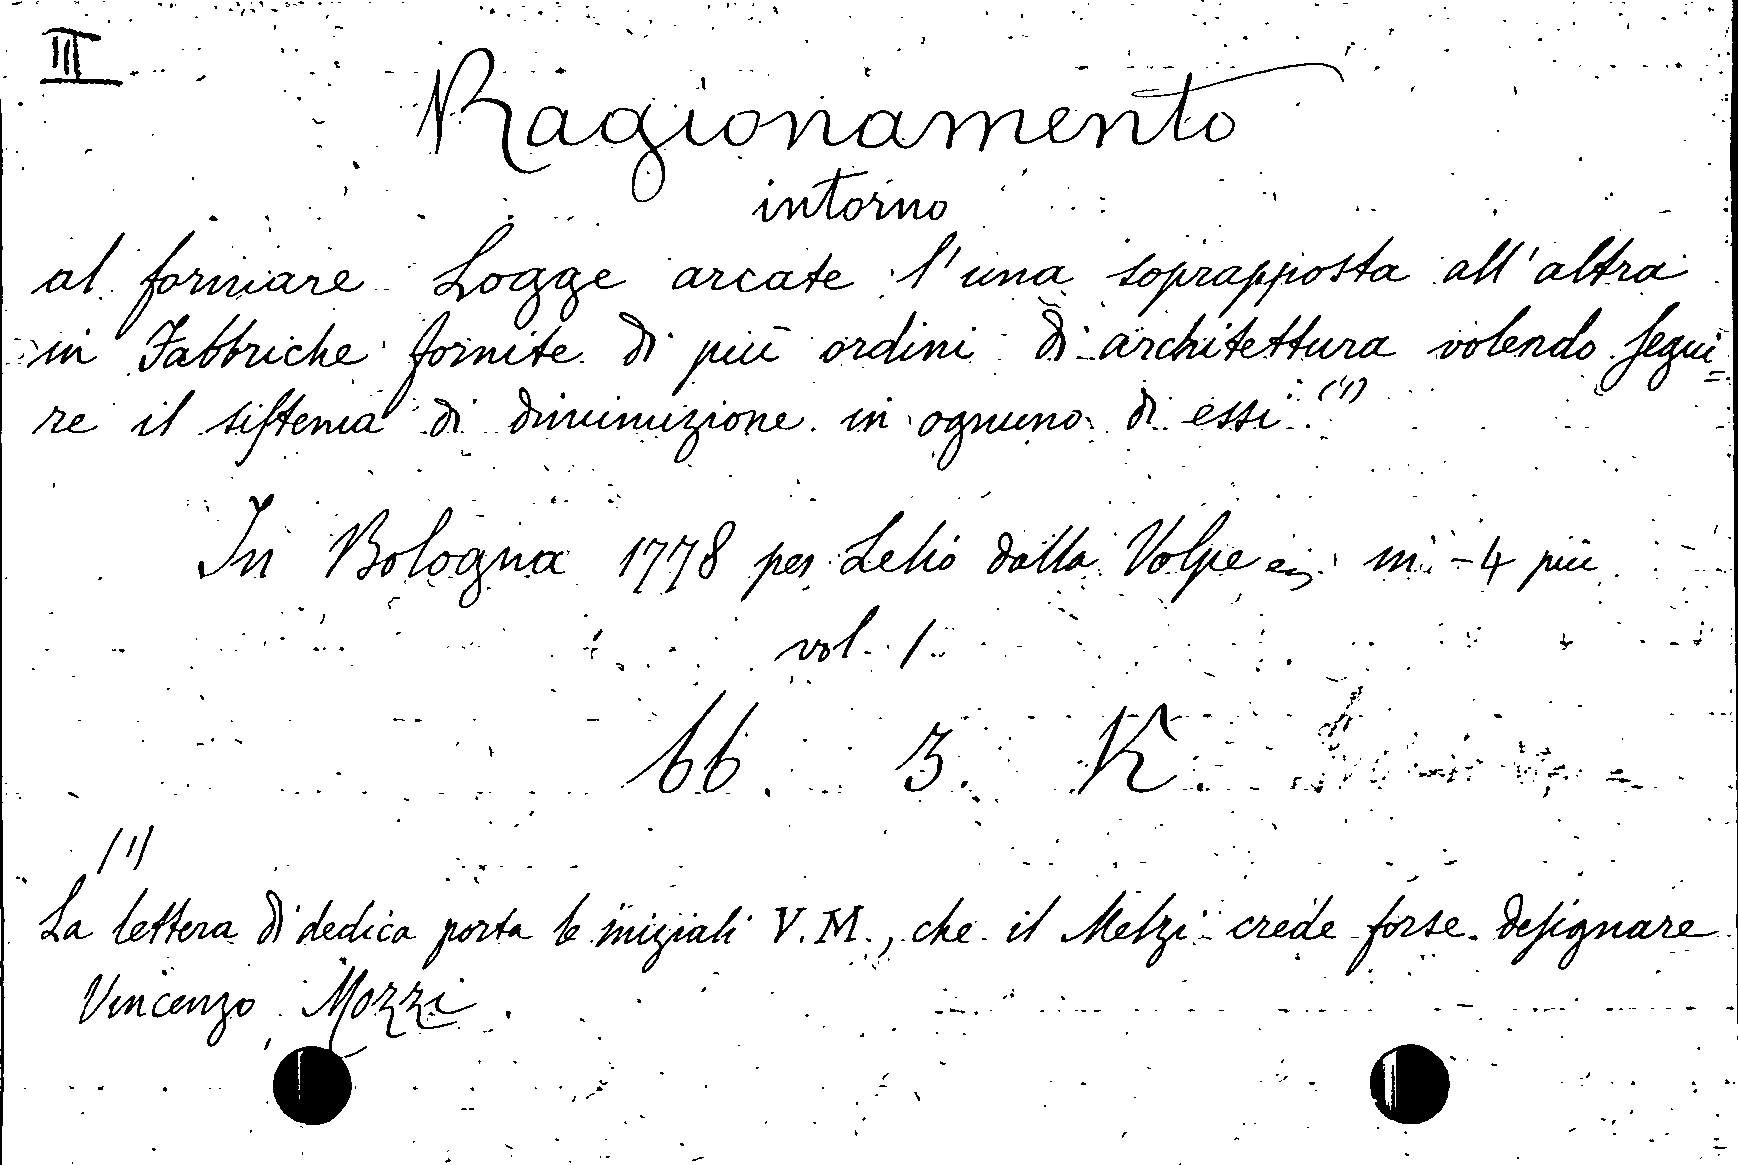 III
Ragionamento
intorno
al formare Logge arcate l'una soprapposta all'altra
in Fabbriche fornite di più ordini di architettura volendo segui=
re il sistema di diminuzione in ognuno di essi (1)
In Bologna 1778 per Lelio dalla Volpe in-4 più
vol. 1
66. 3. K.
(1)
La lettera di dedica porta le iniziali V. M., che il Melzi crede forse designare
Vincenzo Mozzi.